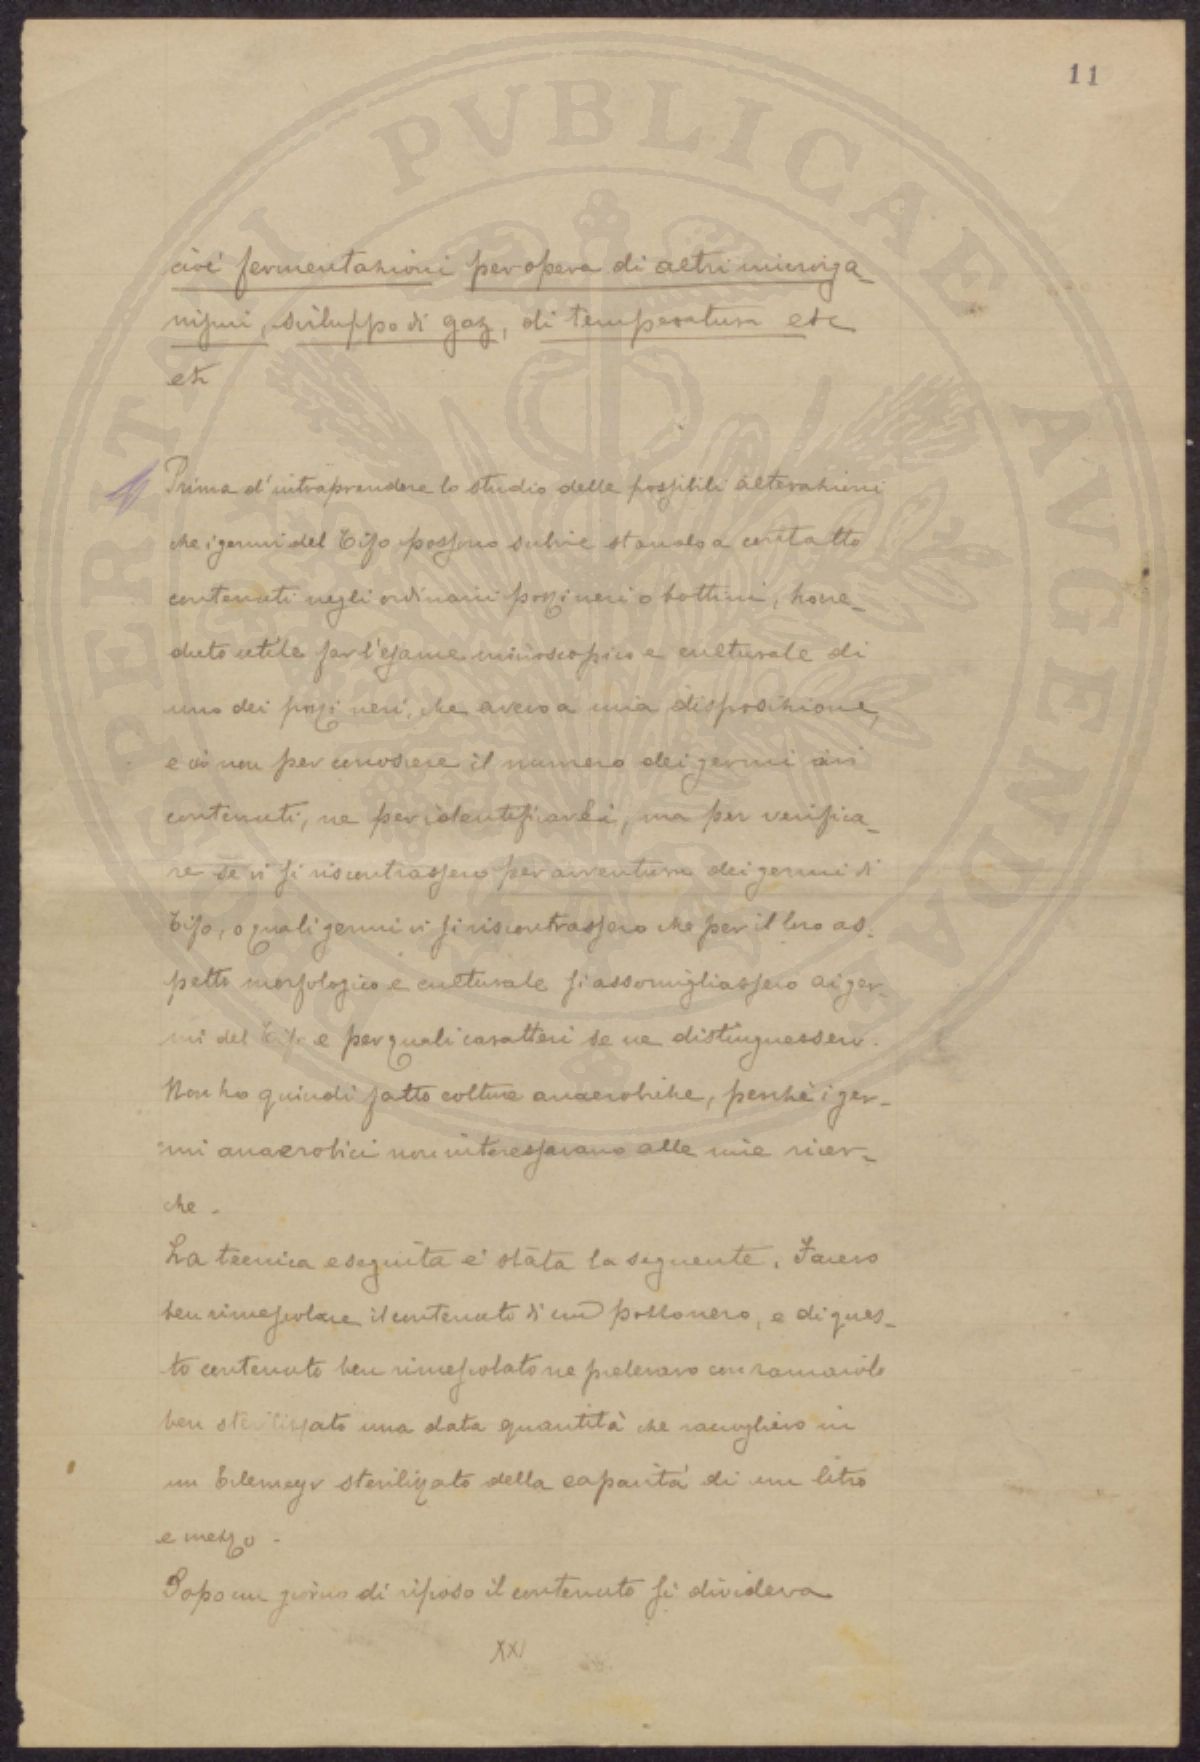 11
PROSPERITATI PVBLICAE AVGENDAE
cioè fermentazioni per opera di altri microrga-
nismi, sviluppo di gaz, di temperatura etc
etc
Prima d'intraprendere lo studio delle possibili alterazioni
che i germi del Tifo possono subire stando a contatto
contenuti negli ordinari pozzi neri o bottini, ho ve-
duto utile far l'esame microscopico e culturale di
uno dei pozzi neri, che avevo a mia disposizione,
e ciò non per conoscere il numero dei germi ivi
contenuti, ne per identificarli, ma per verifica-
re se vi si riscontrassero per avventura dei germi di
Tifo, o quali germi vi si riscontrassero che per il loro as-
petto morfologico e culturale si assomigliassero ai ger-
mi del Tifo e per quali caratteri se ne distinguessero.
Non ho quindi fatto colture anaerobiche, perchè i ger-
mi anaerobici non interessavano alle mie ricer-
che.
La tecnica eseguita e' stata la seguente. Facevo
ben rimescolare il contenuto di un pozzo nero, e di ques-
to contenuto ben rimescolato ne prelevavo con ramaiolo
ben sterilizzato una data quantità che raccoglievo in
un Erlemeyr sterilizzato della capacità di un litro
e mezzo.
Dopo un giorno di riposo il contenuto si divideva
XX/